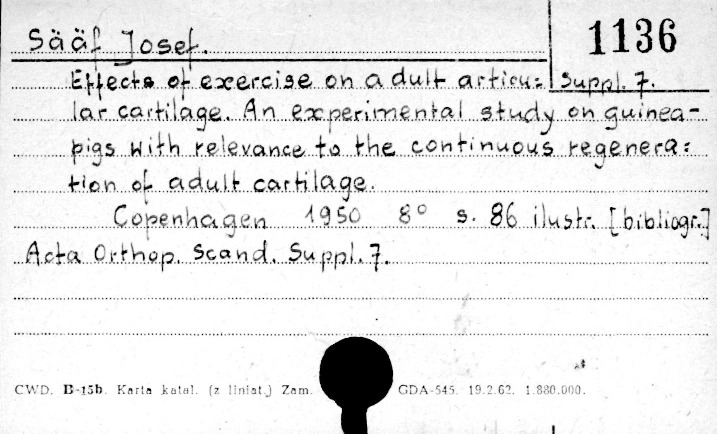 Sääf Josef.
1136
Effects of exercise on adult articu=
Suppl. 7.
lar cartilage. An experimental study on guinea-
pigs with relevance to the continuous regenera=
tion of adult cartilage.
Copenhagen 1950 8° s. 86 ilustr. [bibliogr.]
Acta Orthop. Scand. Suppl. 7.
CWD. B-15b. Karta katal. (z liniat.) Zam. GDA-545. 19.2.62. 1.880.000.